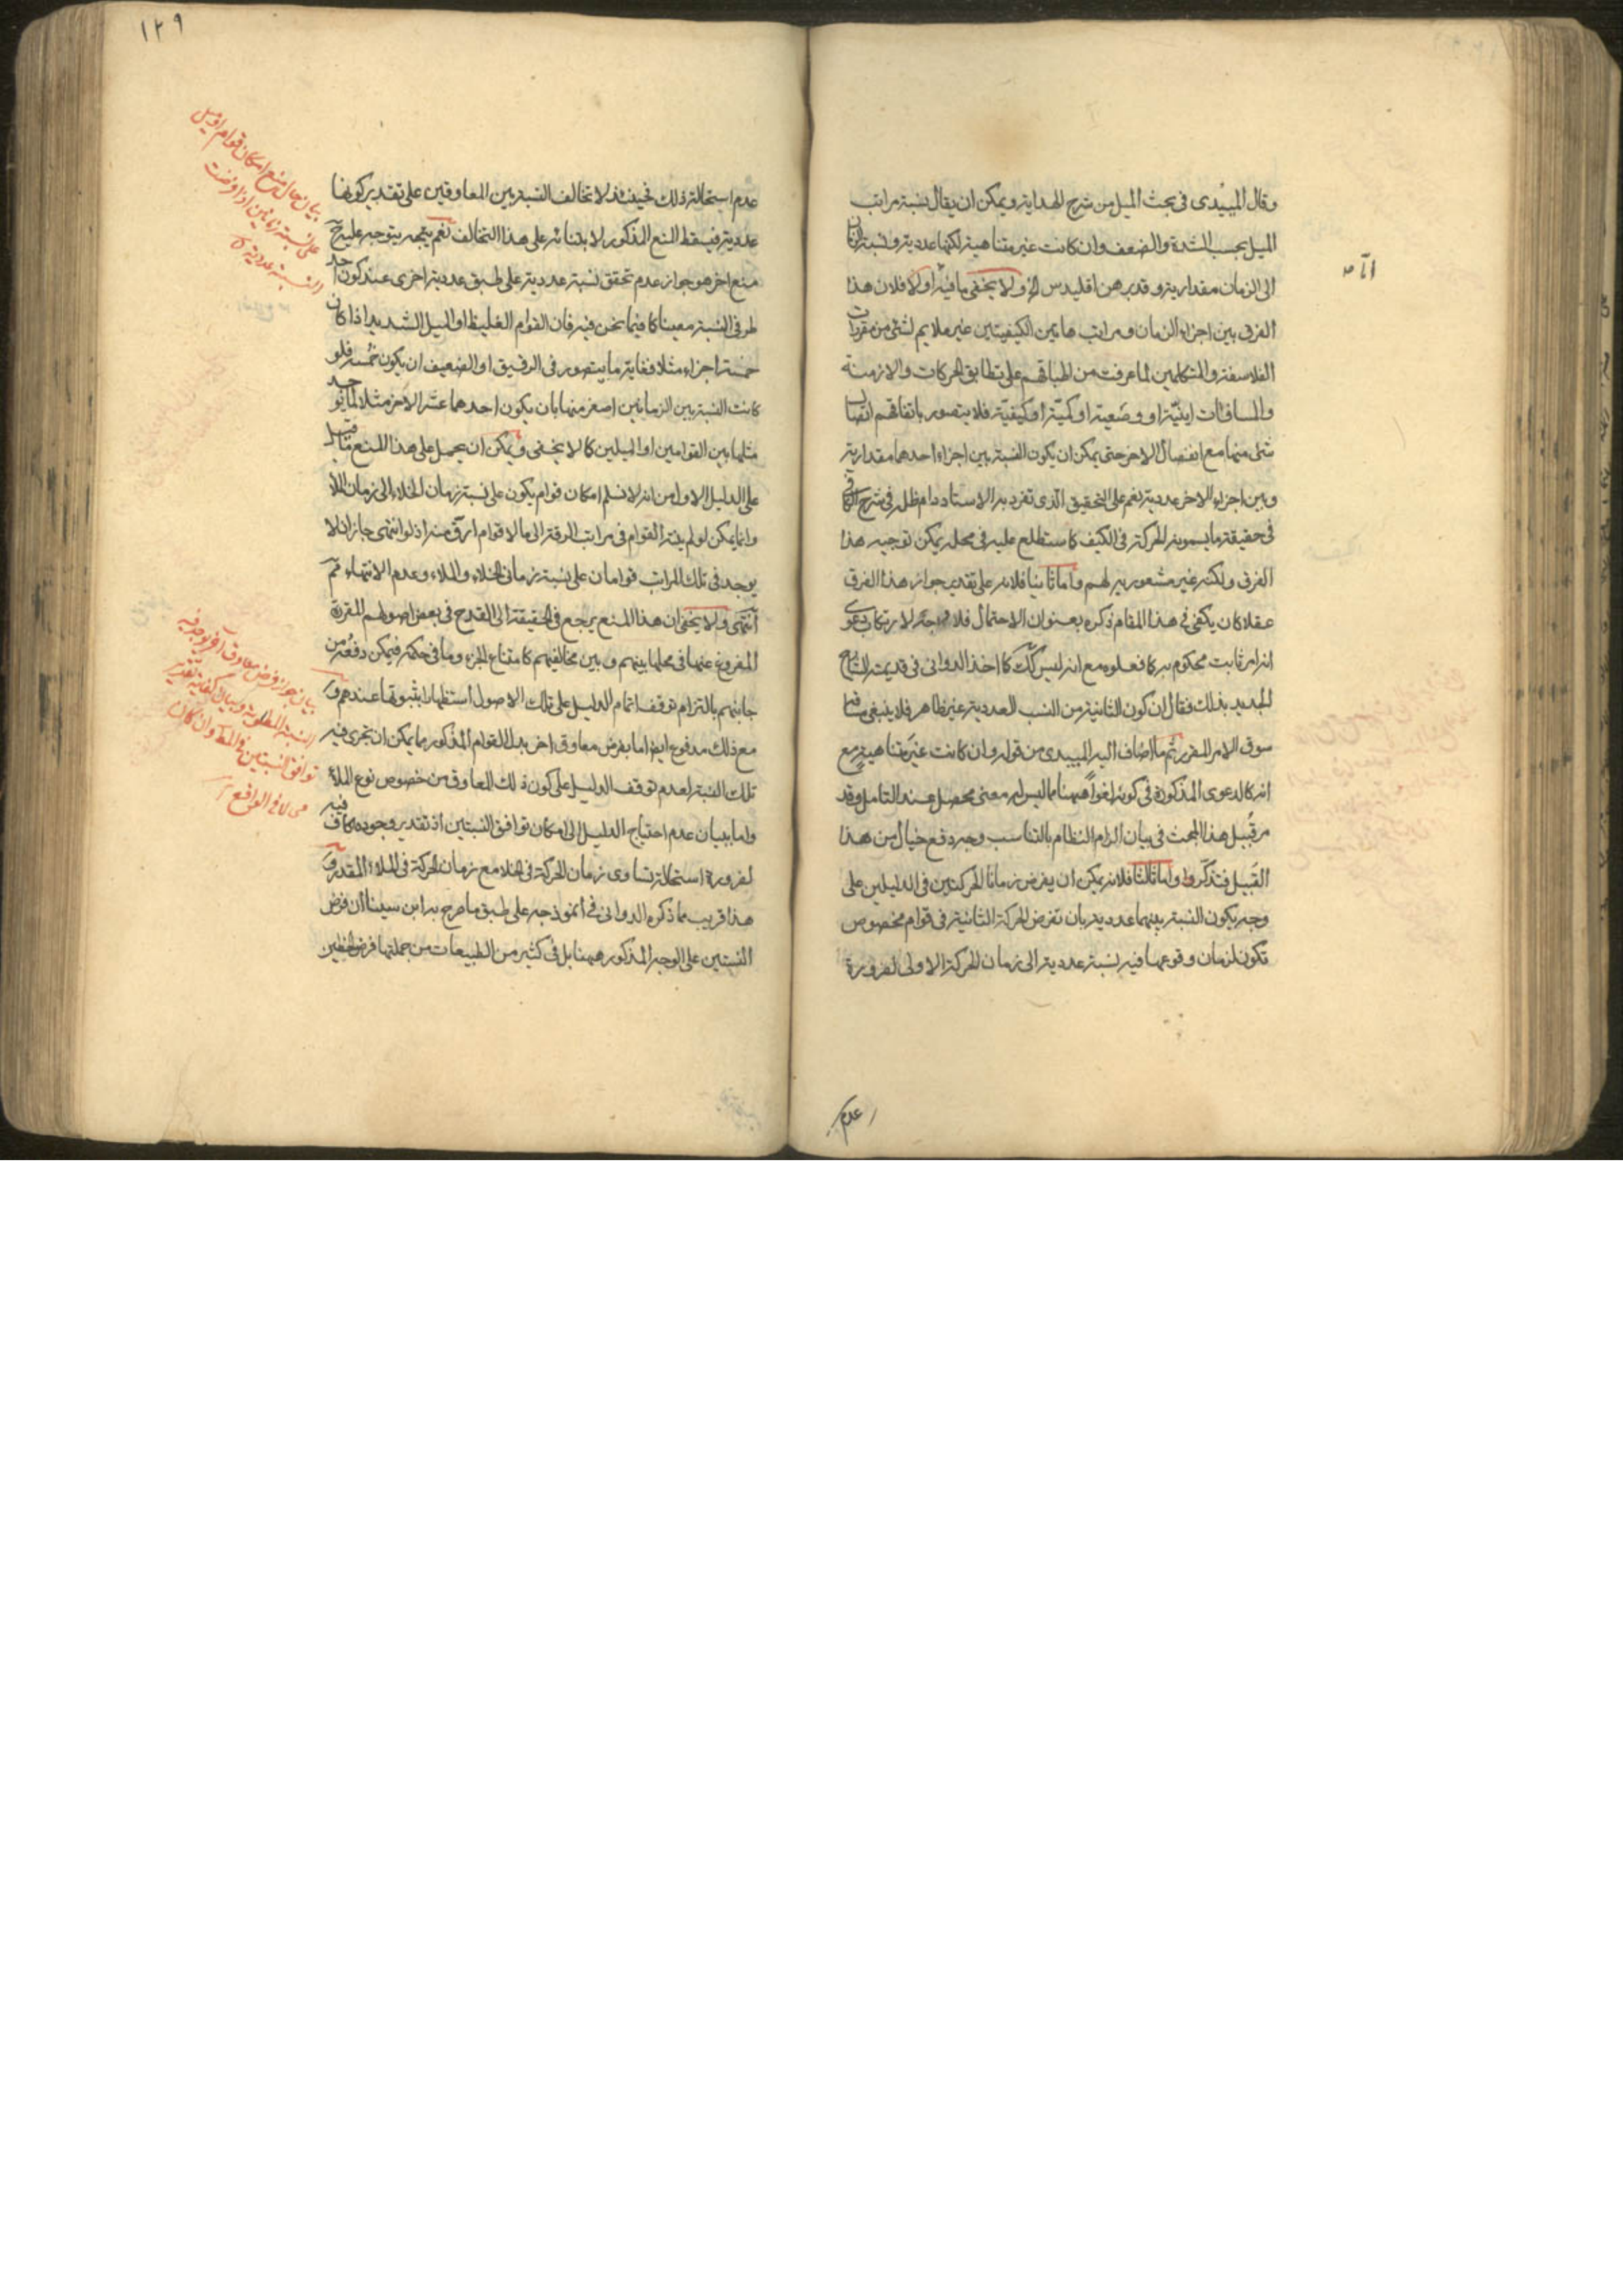 وقال الميبدى فى بحث الميل من شرح الهداية ويمكن ان يقال نسبة مراتب
الميل بحسب الشدة والضعف وان كانت غير متناهية لكنها عددية ونسبة الزمان
الى الزمان مقدارية وقد برهن اقليدس الخ ولا يخفى ما فيه اما اولا فلان هذا
الفرق بين اجزاء الزمان ومراتب هاتين الكيفيتين غير ملايم لشئ من مقررات
الفلاسفة والمتكلمين لما عرفت من اطباقهم على تطابق الحركات والازمنة
والمسافات اينيّة او وضعية او كميّة او كيفيّة فلا يتصور باتفاقهم اتصال
شئ منها مع انفصال الاخر حتى يمكن ان يكون النسبة بين اجزاء احدها مقدارية
وبين اجزاء الاخر عددية نعم على التحقيق الذى تفرد به الاستاد دام ظله فى شرح الكافى
فى حقيقة ما يسمونه الحركة فى الكيف كما ستطلع عليه فى محله يمكن توجيه هذا
الفرق ولكنه غير مشعور به لهم واما ثانيا فلانه على تقدير جواز هذا الفرق
عقلا كان يكفى فى هذا المقام ذكره بعنوان الاحتمال فلا وجه لارتكاب دعوى
انه امر ثابت محكوم به كما فعلوه مع انه ليس كك كما اخذ الدوانى فى قديمة الشارح
الجديد بذلك فقال ان كون الثانية من النسب العددية غير ظاهر فلا ينبغى
سوق الامر المقرر ثم ما اضاف اليه الميبدى من قوله وان كانت غير متناهية مع
انه كالدعوى المذكورة فى كونه لغوا ههنا مما ليس له معنى محصل عند التامل وقد
مر قبيل هذا المبحث فى بيان الزام النظام بالتناسب وجه دفع خيال من هذا
القبيل فتذكروا واما ثالثا فلانه يمكن ان يفرض زمانا الحركتين فى الدليلين على
وجه يكون النسبة بينهما عددية بان تفرض الحركة الثانية فى قوام مخصوص
تكون لزمان وقوعها فيه نسبة عددية الى زمان الحركة الاولى لضرورة
عدم
١٢٩
عدم استحالة ذلك فحينئذ لا تخالف النسبة بين المعاوقين على تقدير كونها
عددية فيسقط المنع المذكور لابتنائه على هذا التخالف نعم يتجه يتوجه عليه ح
منع اخر هو جواز عدم تحقق نسبة عددية على طبق عددية اخرى عند كون احد
طرفى النسبة معينا كما فيما نحن فيه فان القوام الغليظ او الميل الشديد اذا كان
خمسة اجزاء مثلا فغاية ما يتصور فى الرقيق او الضعيف ان يكون خمسه فلو
كانت النسبة بين الزمانين اصغر منها بان يكون احدهما عشر الاخر مثلا لم يوجد
مثلها بين القوامين او الميلين كما لا يخفى ويمكن ان يحمل على هذا المنع ما قيل
على الدليل الاول من انه لا نسلم امكان قوام يكون على نسبة زمان الخلاء الى زمان الملأ
وانما يمكن لو لم ينته القوام فى مراتب الرقة الى ما لا قوام ارق منه اذ لو انتهى جاز ان لا
يوجد فى تلك المراتب قوامان على نسبة زمان الخلاء والملاء وعدم الانتهاء مم
انتهى ولا يخفى ان هذا المنع يرجع فى الحقيقة الى القدح فى بعض اصولهم المقررة
المفروغ عنها فى محلها بينهم وبين مخالفيهم كامتناع الجزء وما فى حكمه فيمكن دفعه من
جانبهم بالتزام توقف اتمام الدليل على تلك الاصول استظهارا بثبوتها عندهم و
مع ذلك مدفوع ايضا اما بفرض معاوق اخر بدل القوام المذكور مما يمكن ان تجرى فيه
تلك النسبة لعدم توقف الدليل على كون ذلك المعاوق من خصوص نوع الملأ
واما ببيان عدم احتياج الدليل الى امكان توافق النسبتين اذ تقدير وجوده كاف فيه
لضرورة استحالة تساوى زمان الحركة فى الخلاء مع زمان الحركة فى الملاء المقدر و
هذا قريب مما ذكره الدوانى فى انموذجه على طبق ما صرح به ابن سينا ان فرض
النسبتين على الوجه المذكور ههنا بل فى كثير من الطبيعات من جملتها فرض الخطين
بيان حال منع امكان قوام او ميل
على نسبة زمانين اذا فرضت
النسبة عددية
بيان جواز فرض معاوق آخر يوجد فيه
النسبة المطلوبة وبيان كفاية تقدير
توافق النسبتين فى المط وان كان
محالا فى الواقع